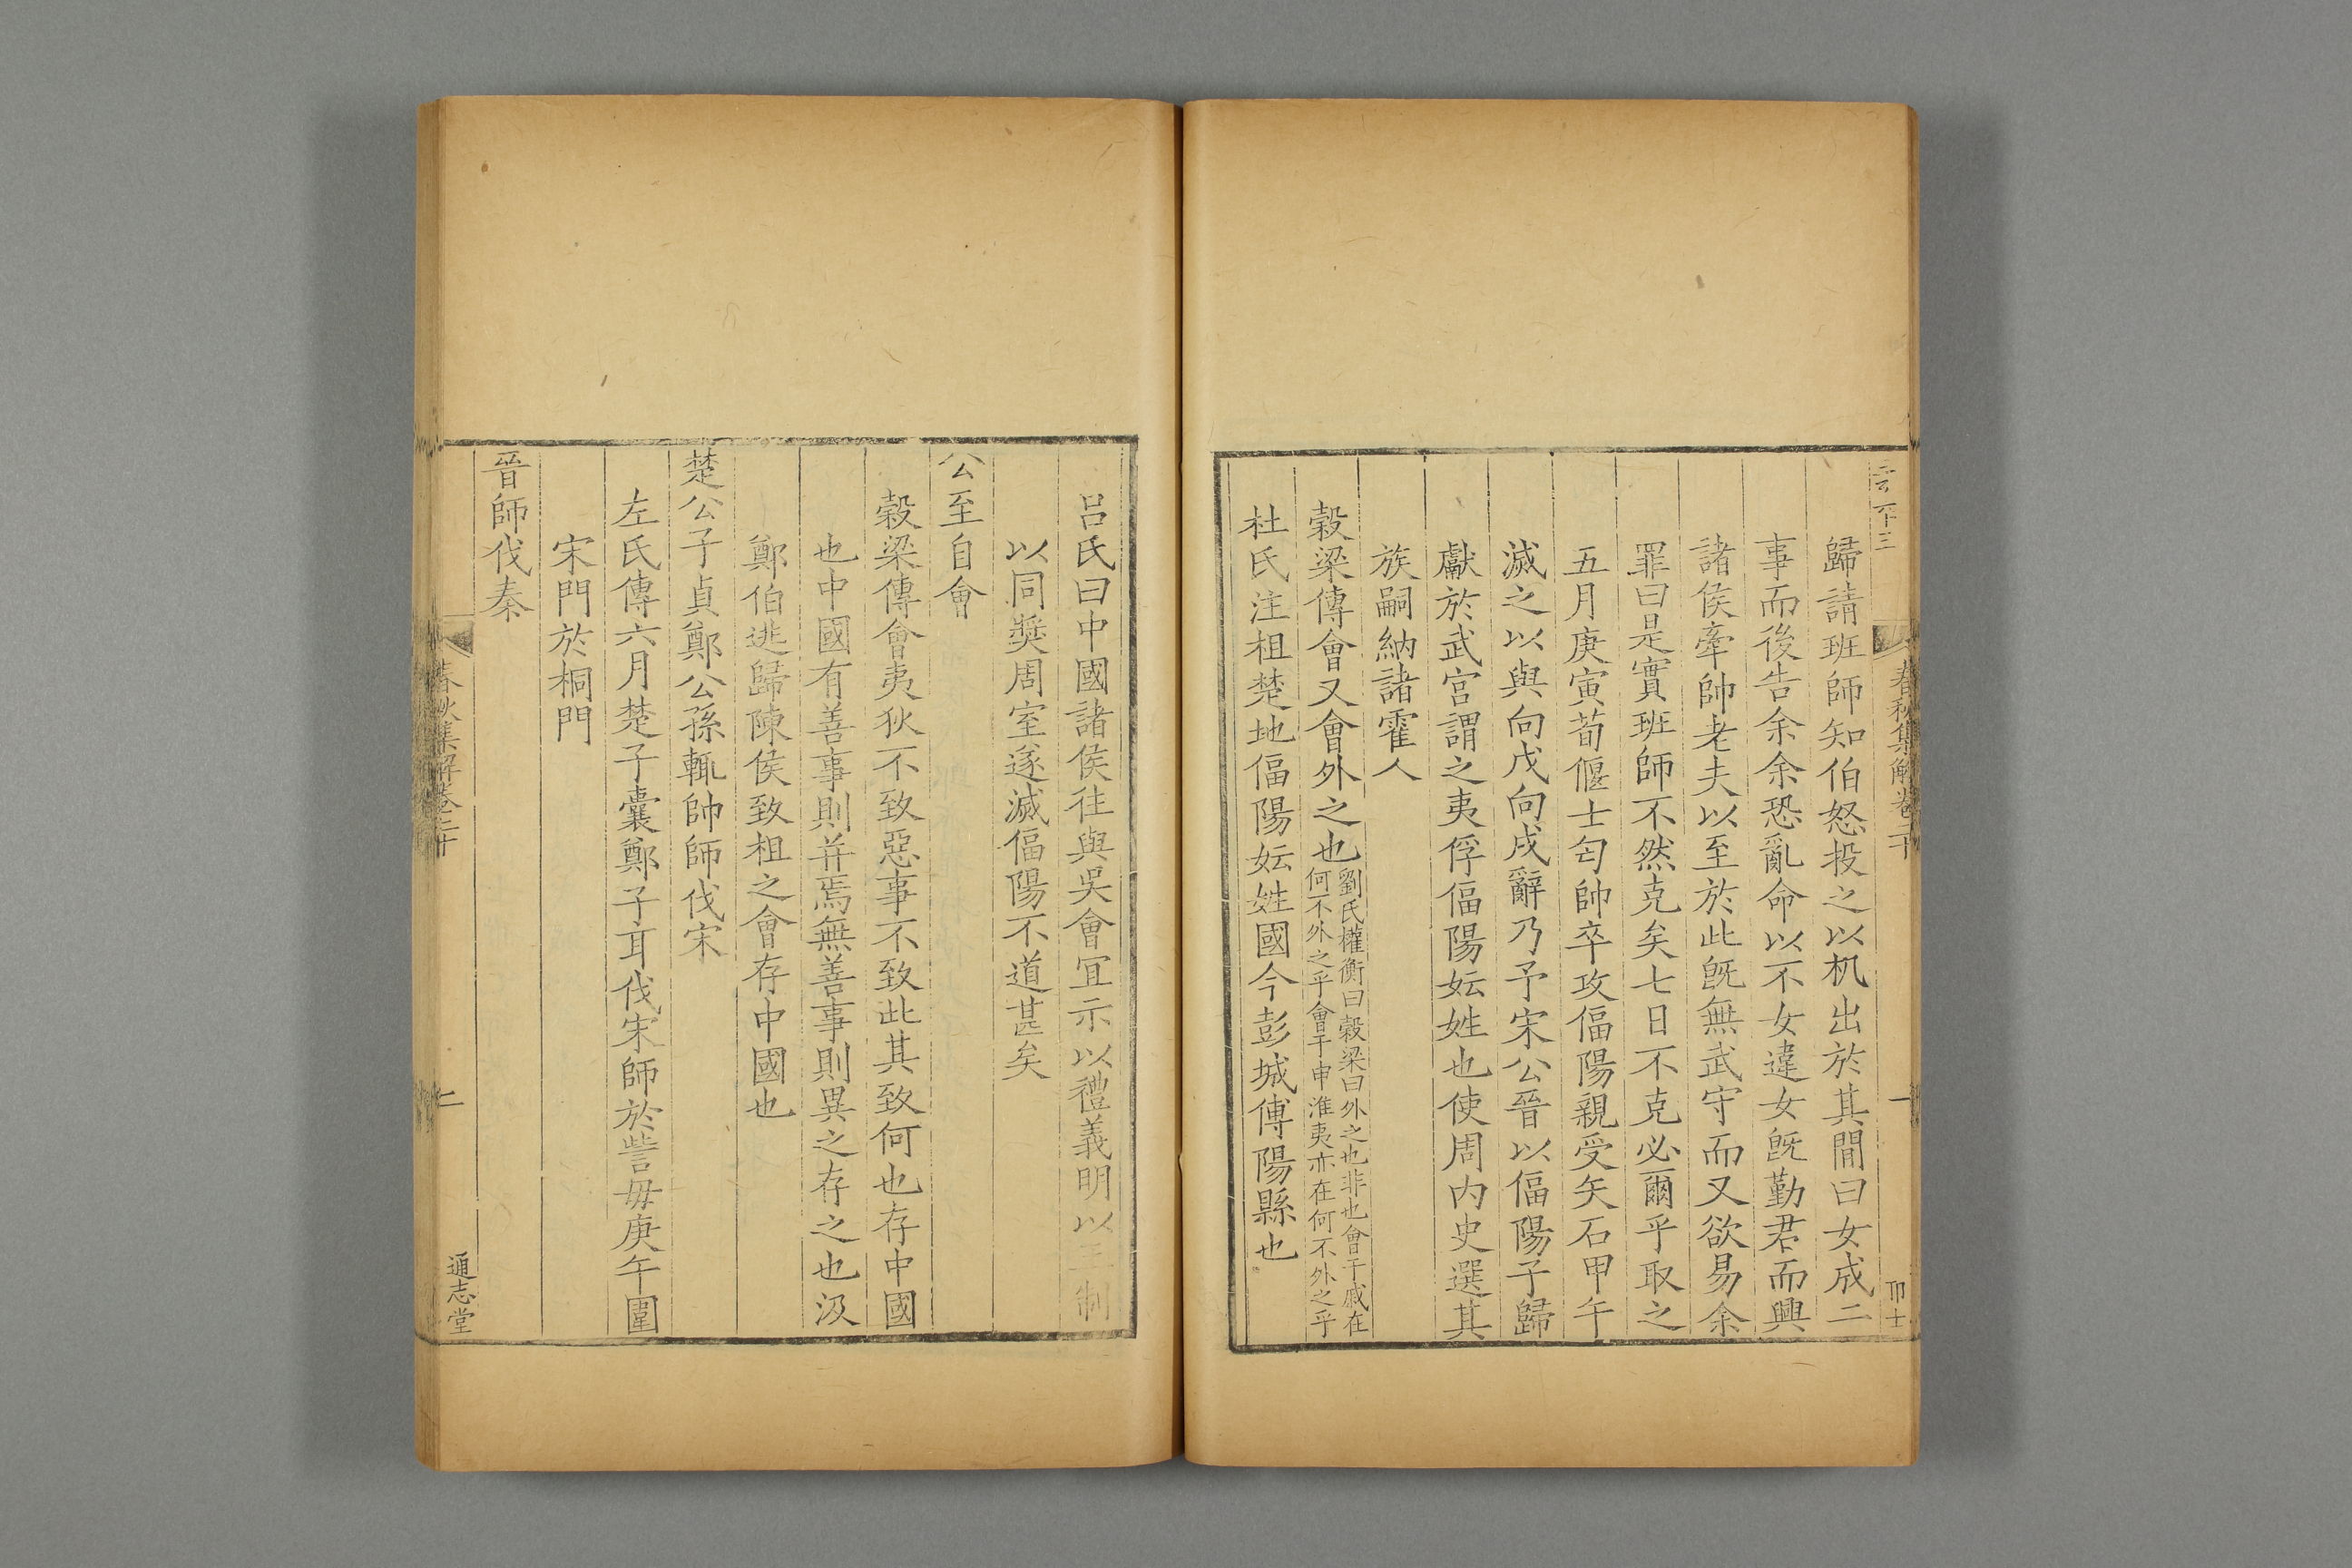 春秋集解卷二十
一
歸請班師知伯怒投之以机出於其間曰女成二
事而後告余余恐亂命以不女違女旣勤君而興
諸侯牽帥老夫以至於此旣無武守而又欲易余
罪曰是實班師不然克矣七日不克必爾乎取之
五月庚寅荀偃士匄帥卒攻偪陽親受矢石甲午
滅之以與向戌向戌辭乃予宋公晉以偪陽子歸
獻於武宮謂之夷俘偪陽妘姓也使周內史選其
族嗣納諸霍人
穀梁傳會又會外之也劉氏權衡曰穀梁曰外之也非也會于戚在
何不外之乎會于申淮夷亦在何不外之乎
杜氏注柤楚地偪陽妘姓國今彭城傅陽縣也
呂氏曰中國諸侯往與吳會宜示以禮義明以王制
以同奬周室遂滅偪陽不道甚矣
公至自會
穀梁傳會夷狄不致惡事不致此其致何也存中國
也中國有善事則并焉無善事則異之存之也汲
鄭伯逃歸陳侯致柤之會存中國也
楚公子貞鄭公孫輒帥師伐宋
左氏傳六月楚子囊鄭子耳伐宋師於訾毋庚午圍
宋門於桐門
晉師伐秦
春秋集解卷二十
二
通志堂